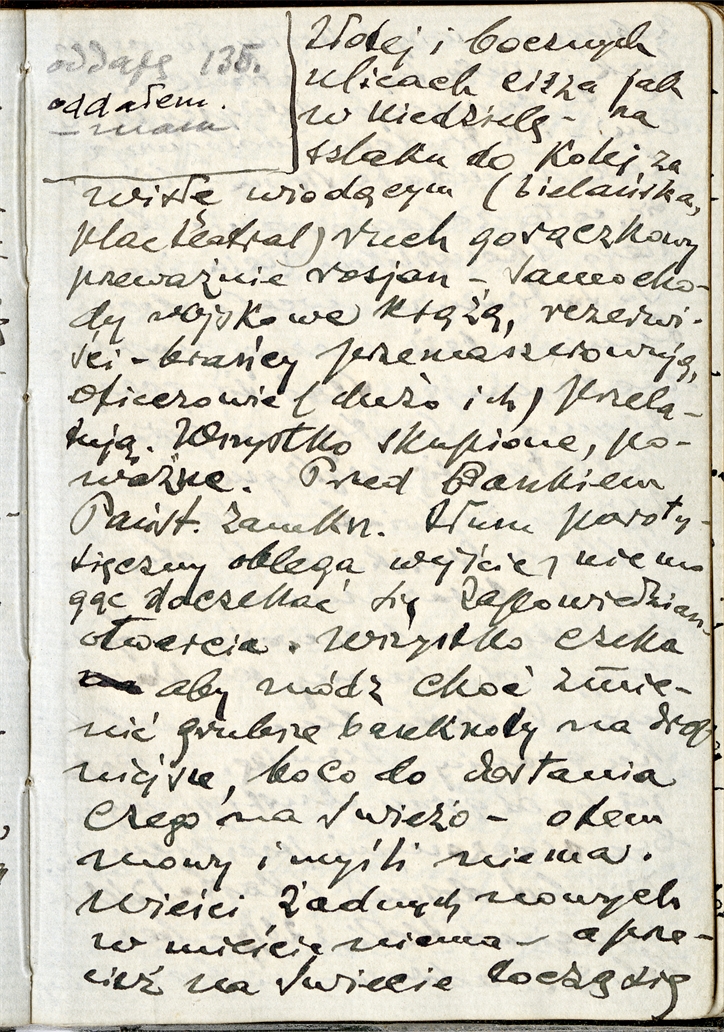 oddaję 135.
oddałem.
– mam
Złotej i bocznych
ulicach cisza jak
w niedzielę – na
szlaku do Kolej za
wisłę wiodącym (bielańska,
plac teatral) ruch gorączkowy
przeważnie rosjan – samocho-
dy wojskowe krążą, rezerwi-
ści – brańcy przemaszerowują,
oficerowie (dużo ich) przela-
tują. Wszystko skupione, po-
ważne. Przed Bankiem
Państ. zamkn. tłum paroty-
sięczny oblega wejście, nie mo
gąc doczekać się zapowiedzian.
otwarcia. Wszystko czeka
aby módz choć zmie-
nić grubsze banknoty na drob
niejsze, bo co do dostania
czego na świeżo – o tem
mowy i myśli niema.
Wieści żadnych nowych
w mieście niema – a prze-
cież na świecie toczą się